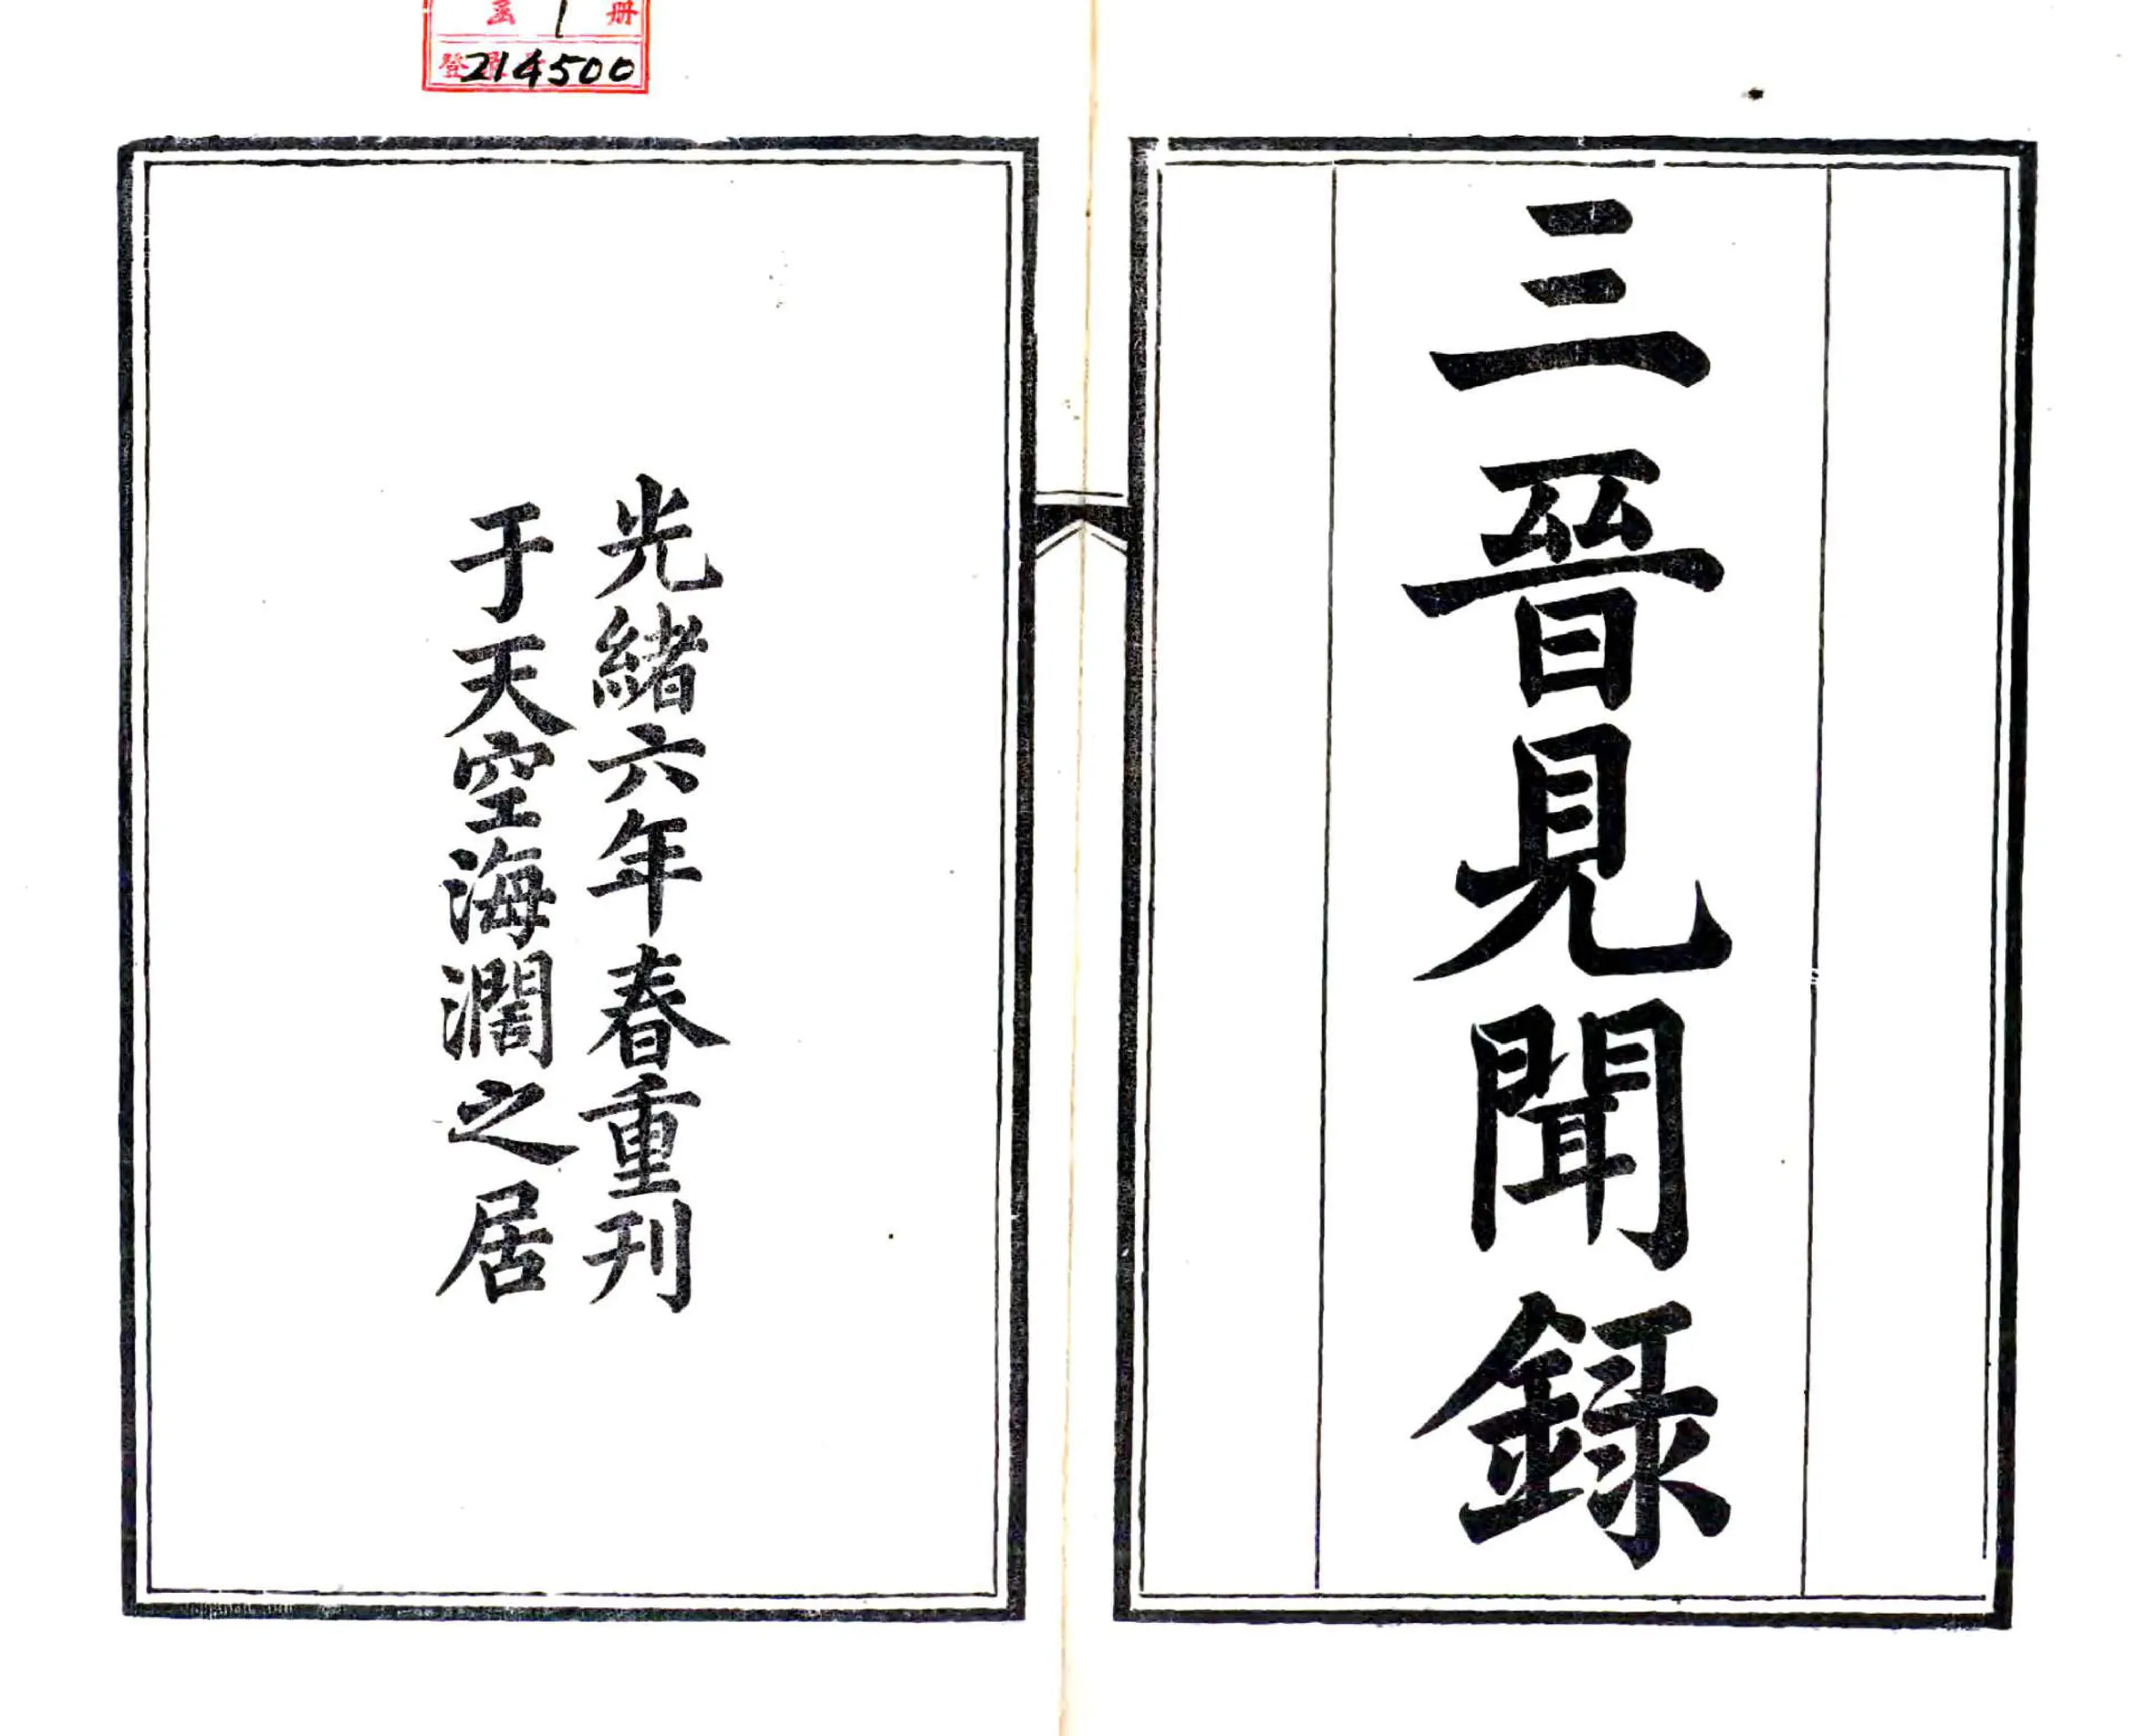 三晉見聞録
光緒六年春重刊
于天空海濶之居
函 1 册
登錄 214500